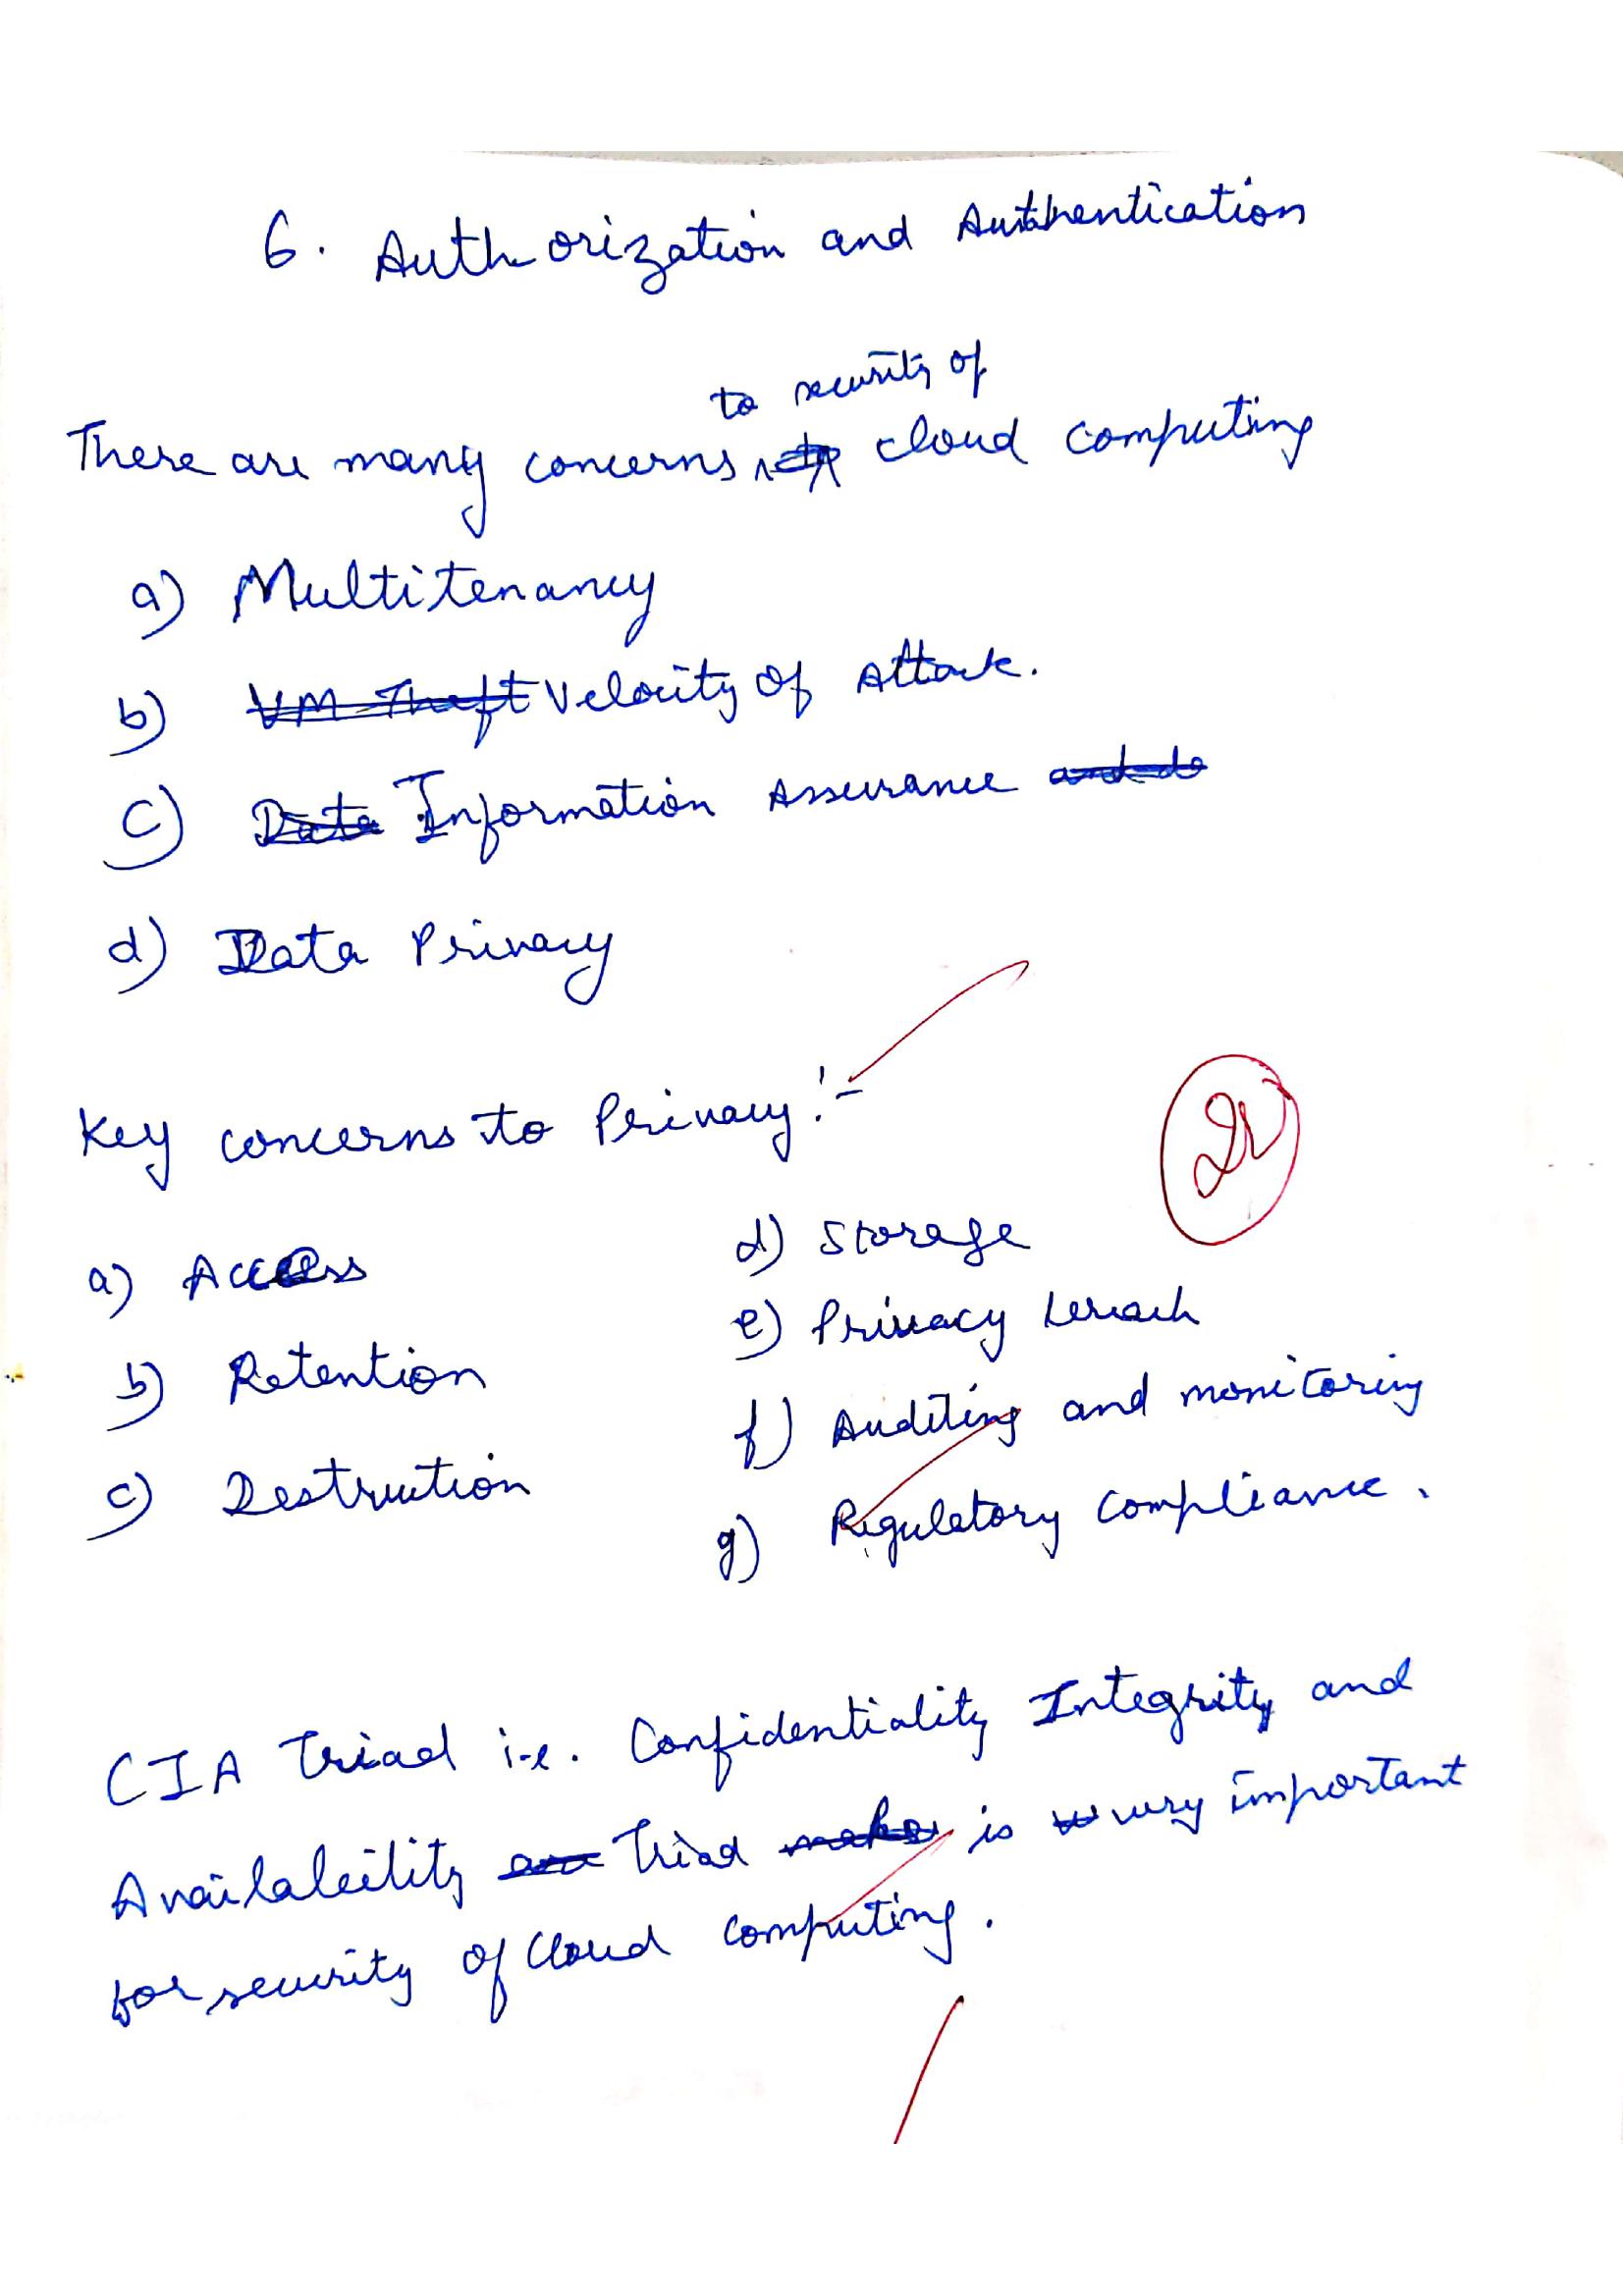 6. Authorization and Authentication
to security of
There are many concerns cloud computing
a) Multitenancy
b) VM Theft Velocity of Attack.
c) Data Information Assurance and do
d) Data Privacy
Key concerns to Privacy:-
a) Access
b) Retention
c) Destruction
d) Storage
e) Privacy breach
f) Auditing and monitoring
g) Regulatory compliance.
CIA Triad i.e. Confidentiality Integrity and
Availability Triad is very important
for security of Cloud computing.